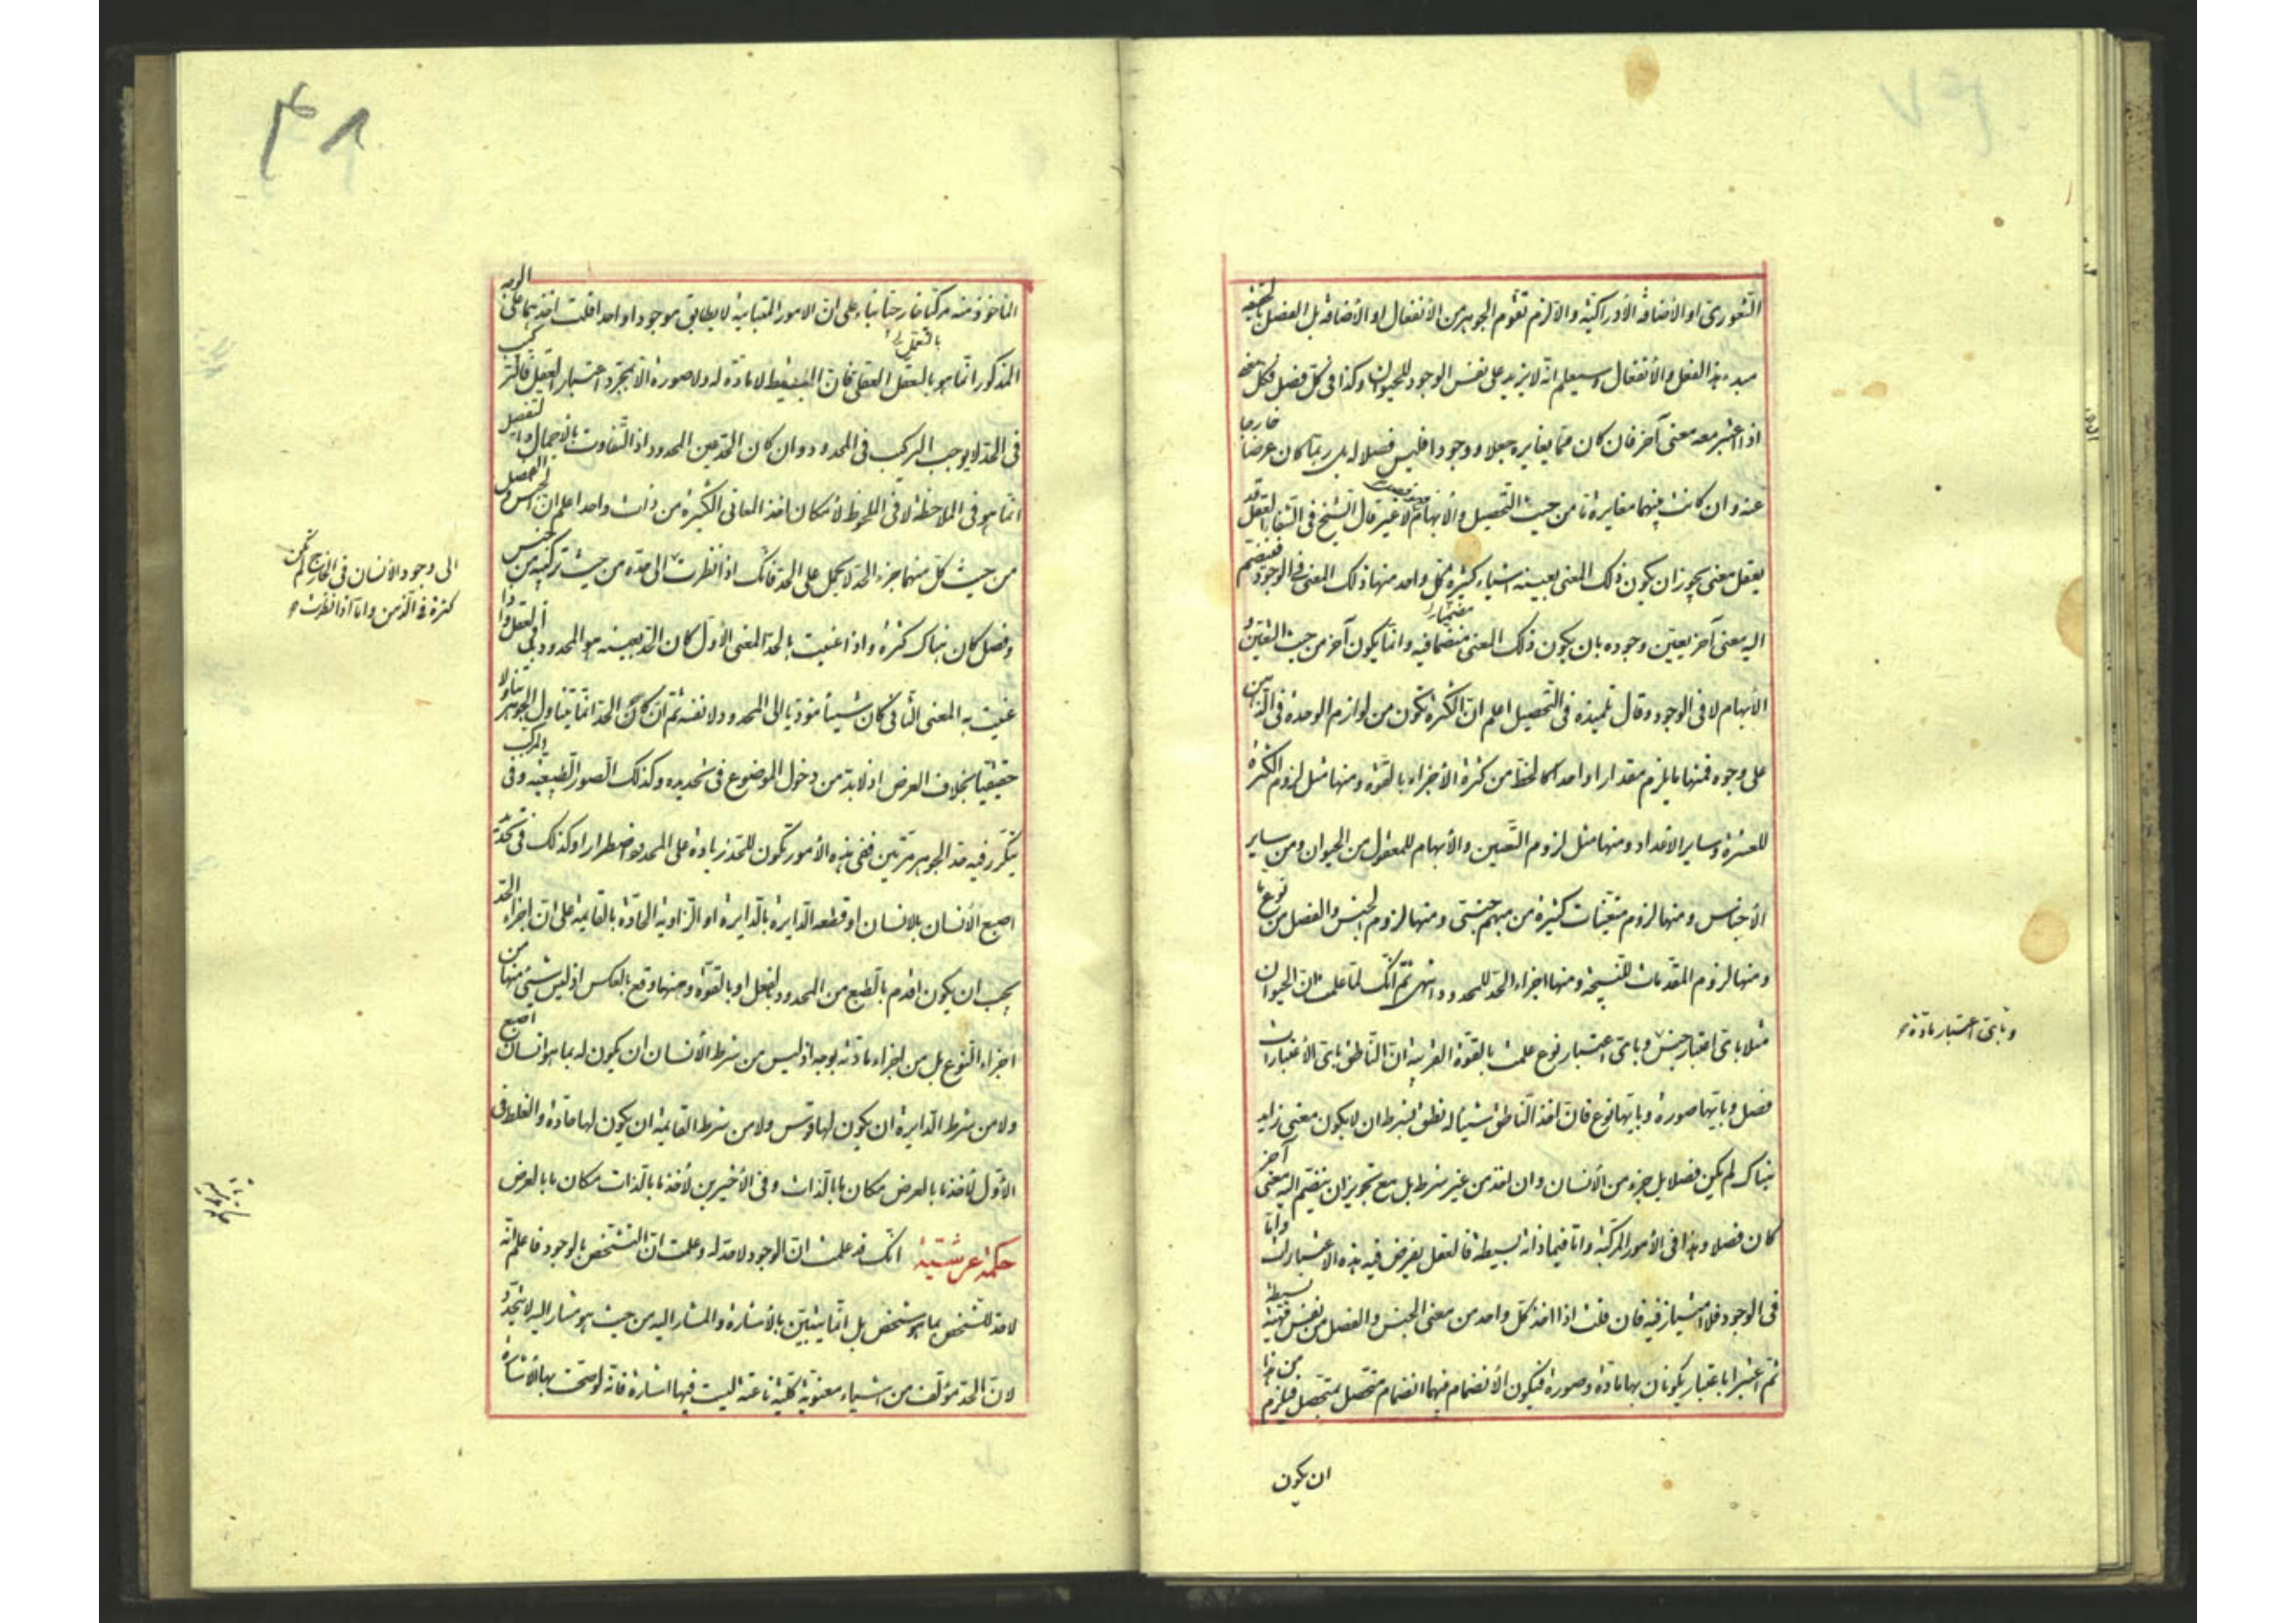 الشعورى او الأضافة الأدراكية والا لزم تقوم الجوهر من الأنفعال او الأضافة بل الفصل بالحقيقة
مبدء هذا الفعل والأنفعال وسيعلم انه لا يزيد على نفس الوجود للحيوان وكذا فى كل فصل فكل معنى
اذا اعتبر معه معنى آخر فان كان مما يغايره جعلا ووجودا فليس فصلا له بل ربما كان عرضا خارجا
عنه وان كانت بينهما مغايرة ما من حيث التحصيل والأبهام لا غير قال الشيخ فى الشفا العقل قد
يعقل معنى يجوز ان يكون ذلك المعنى بعينه اشياء كثيرة كل واحد منها ذلك المعنى فى الوجود فينضم
اليه معنى آخر يعين وجوده بان يكون ذلك المعنى متضمنا فيه وانما يكون آخر من حيث التعين و
الأبهام لا فى الوجود وقال تلميذه فى التحصيل اعلم ان الكثرة تكون من لوازم الوحدة فى الذهن
على وجوه فمنها ما يلزم مقدارا واحدا كالخط من كثرة الأجزاء بالقوة ومنها مثل لزوم الكثرة
للعشرة وساير الأعداد ومنها مثل لزوم التعين والأبهام للمعقول من الحيوان ومن ساير
الأجناس ومنها لزوم متعينات كثيرة من مبهم جنسى ومنها لزوم الجنس والفصل من نوع ما
ومنها لزوم المقدمات للنتيجة ومنها اجزاء الحد للمحدود انتهى ثم انك لما علمت ان الحيوان
مثلا باى اعتبار جنس وباى اعتبار نوع علمت بالقوة القريبة ان الناطق باى الأعتبارات
وباى اعتبار مادة
فصل وبايها صورة وبايها نوع فان اخذ الناطق شيئا له نطق بشرط ان لا يكون معنى زايد
هناك لم يكن فصلا بل جزء من الأنسان وان اخذ من غير شرط بل مع تجويز ان ينضم اليه معنى آخر
كان فصلا وهذا فى الأمور المركبة واما فيما ذاته بسيطة فالعقل يفرض فيه هذه الاعتبارات واما
فى الوجود فلا امتياز فيه فان قلت اذا اخذ كل واحد من معنى الجنس والفصل من نفس مهية بسيطة
ثم اعتبرا باعتبار يكونان بها مادة وصورة فيكون الأنضمام فيهما انضمام متحصل بمتحصل فيلزم من هذا
ان يكون
٤٨
الماخوذ منه مركبا خارجيا بناء على ان الامور المتباينة لا يطابق موجودا واحدا قلت اخذهما على الوجه
المذكور انما هو بالتعمل العقلى فان البسيط لا مادة له ولا صورة الا بمجرد اعتبار العقل فالتركيب
فى الحد لا يوجب التركيب فى المحدود وان كان الحد عين المحدود اذ التفاوت بالاجمال والتفصيل
انما هو فى الملاحظة لا فى الملحوظ لأمكان اخذ المعانى الكثيرة من ذات واحد اعلم ان الجنس والفصل
من حيث كل منهما جزء الحد لا يحمل على الحد فانك اذا نظرت الى حده من حيث تركيبه من جنس
الى وجود الأنسان فى الخارج لم يكن
كثرة فى الذهن واما اذا نظرت
وفصل كان هناك كثرة واذا عنيت بالحد المعنى الأول كان الحد بعينه هو المحدود فى العقل واذا
عنيت به المعنى الثانى كان شيئا مؤديا الى المحدود لا نفسه ثم ان كان الحد انما يتناول الجوهر تناولا
حقيقيا بخلاف العرض اذ لا بد من دخول الموضوع فى تحديده وكذلك الصور الطبيعية وفى المركب
يتكرر فيه حد الجوهر مرتين ففى هذه الأمور تكون للحد زيادة على المحدود اضطرارا وكذلك فى تحديد
اصبع الأنسان بالانسان او قطعة الدايرة بالدايرة او الزاوية الحادة بالقايمة على ان اجزاء الحد
يجب ان يكون اقدم بالطبع من المحدود بالفعل او بالقوة وههنا وقع بالعكس اذ ليس شىء منها من
اجزاء النوع بل من اجزاء مادته بوجه اذ ليس من شرط الأنسان ان يكون له بما هو انسان اصبع
ولا من شرط الدايرة ان يكون لها قوس ولا من شرط القايمة ان يكون لها حادة والغلط فى
الأول لأخذ ما بالعرض مكان ما بالذات وفى الأخيرين لأخذ ما بالذات مكان ما بالعرض
حكمة عرشية انك قد علمت ان الوجود لا حد له وعلمت ان التشخص بالوجود فاعلم انه
لا حد للشخص بما هو شخص بل انما يتبين بالأشارة والمشار اليه من حيث هو مشار اليه لا يتحدد
لان الحد مؤلف من اشياء معنوية كلية ناعتة ليست فيها اشارة فانه لو صحت بها الأشارة